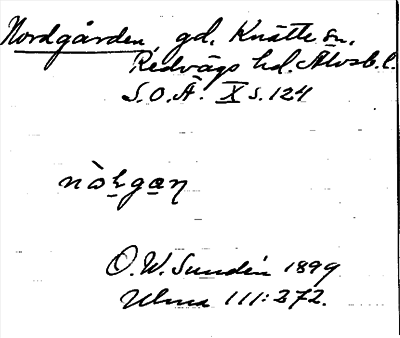 Nordgården, gd, Knätte sn,
Redvägs hd. Älvsb. l.
S.O.Ä. X s. 124
O.W. Sundén 1899
Ulma 111:372.